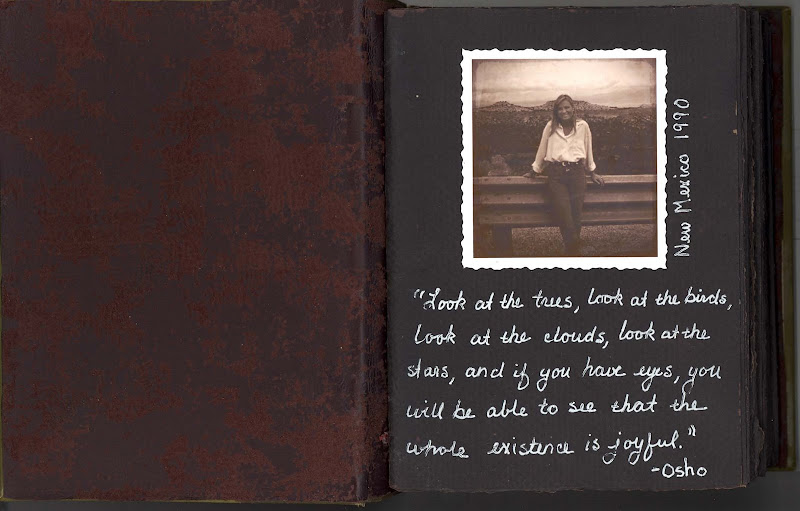 New Mexico 1990
"Look at the trees, look at the birds,
look at the clouds, look at the
stars, and if you have eyes, you
will be able to see that the
whole existence is joyful."
-Osho